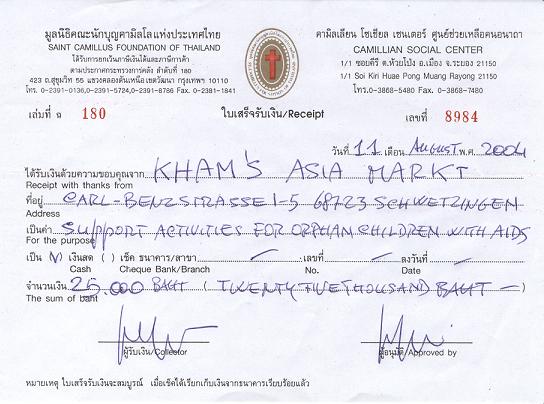 มูลนิธิคณะนักบุญคามิลโลแห่งประเทศไทย
SAINT CAMILLUS FOUNDATION OF THAILAND
ได้รับการยกเว้นภาษีเงินได้และภาษีการค้า
ตามประกาศกระทรวงการคลัง ลำดับที่ 180
423 ถ.สุขุมวิท 55 แขวงคลองตันเหนือ เขตวัฒนา กรุงเทพฯ 10110
โทร. 0-2391-0136,0-2391-5724,0-2391-8786 Fax. 0-2381-1841
คามิลเลียน โซเชียล เซนเตอร์ ศูนย์ช่วยเหลือคนอนาถา
CAMILLIAN SOCIAL CENTER
1/1 ซอยคีรี ต.ห้วยโป่ง อ.เมือง จ.ระยอง 21150
1/1 Soi Kiri Huae Pong Muang Rayong 21150
โทร.0-3868-5480 Fax. 0-3868-7480
เล่มที่ ฉ 180
ใบเสร็จรับเงิน/Receipt
เลขที่ 8984
วันที่ 11 เดือน AUGUST พ.ศ. 2004
ได้รับเงินด้วยความขอบคุณจาก KHAM'S ASIA MARKT
Receipt with thanks from
ที่อยู่ CARL-BENZSTRASSE 1-5 68723 SCHWETZINGEN
Address
เป็นค่า SUPPORT ACTIVITIES FOR ORPHAM CHILDREN WITH AIDS
For the purpose
เป็น (/) เงินสด ( ) เช็ค ธนาคาร/สาขา — เลขที่ — ลงวันที่ —
Cash Cheque Bank/Branch No. Date
จำนวนเงิน 25.000 BAHT ( TWENTY FIVE THOUSAND BAHT — )
The sum of baht
ผู้รับเงิน/Collector
ผู้อนุมัติ/Approved by
หมายเหตุ ใบเสร็จรับเงินจะสมบูรณ์ เมื่อเช็คได้เรียกเก็บเงินจากธนาคารเรียบร้อยแล้ว